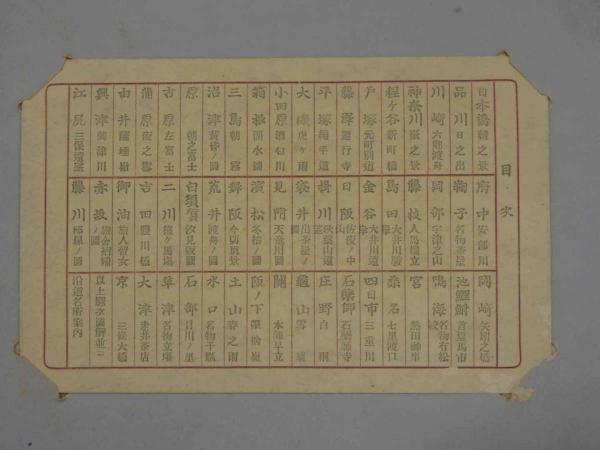 目次
日本橋 朝之景
品川 日之出
川崎 六郷渡舟
神奈川 臺之景
程ヶ谷 新町橋
戸塚 元町別道
藤澤 遊行寺
平塚 繩手道
大磯 虎ヶ雨
小田原 酒匂川
箱根 湖水圖
三島 朝霧
沼津 黄昏ノ圖
原 朝之富士
吉原 左富士
蒲原 夜之雪
由井 薩埵嶺
興津 興津川
江尻 三保遠望
府中 安部川
鞠子 名物茶屋
岡部 宇津之山
藤枝 人馬繼立
島田 大井川駿岸
金谷 大井川遠岸
日阪 佐夜ノ中山
掛川 秋葉山遠望
袋井 出茶屋ノ圖
見附 天竜川圖
濱松 冬枯ノ圖
舞阪 今切眞景
荒井 渡舟ノ圖
白須賀 汐見阪圖
二川 猿ヶ馬場
吉田 豊川橋
御油 旅人留女
赤坂 旅舎招婦ノ圖
藤川 棒鼻ノ圖
岡崎 矢矧之橋
池鯉鮒 首夏馬市
鳴海 名物有松絞
宮 熱田神事
桑名 七里渡口
四日市 三重川
石藥師 石藥師寺
庄野 白雨
龜山 雪晴
關 本陣早立
阪ノ下 筆捨嶺
土山 春之雨
水口 名物干瓢
石部 目川ノ里
草津 名物立場
大津 走井茶店
京 三條大橋
以上驛次圖解並ニ
沿道名所案内